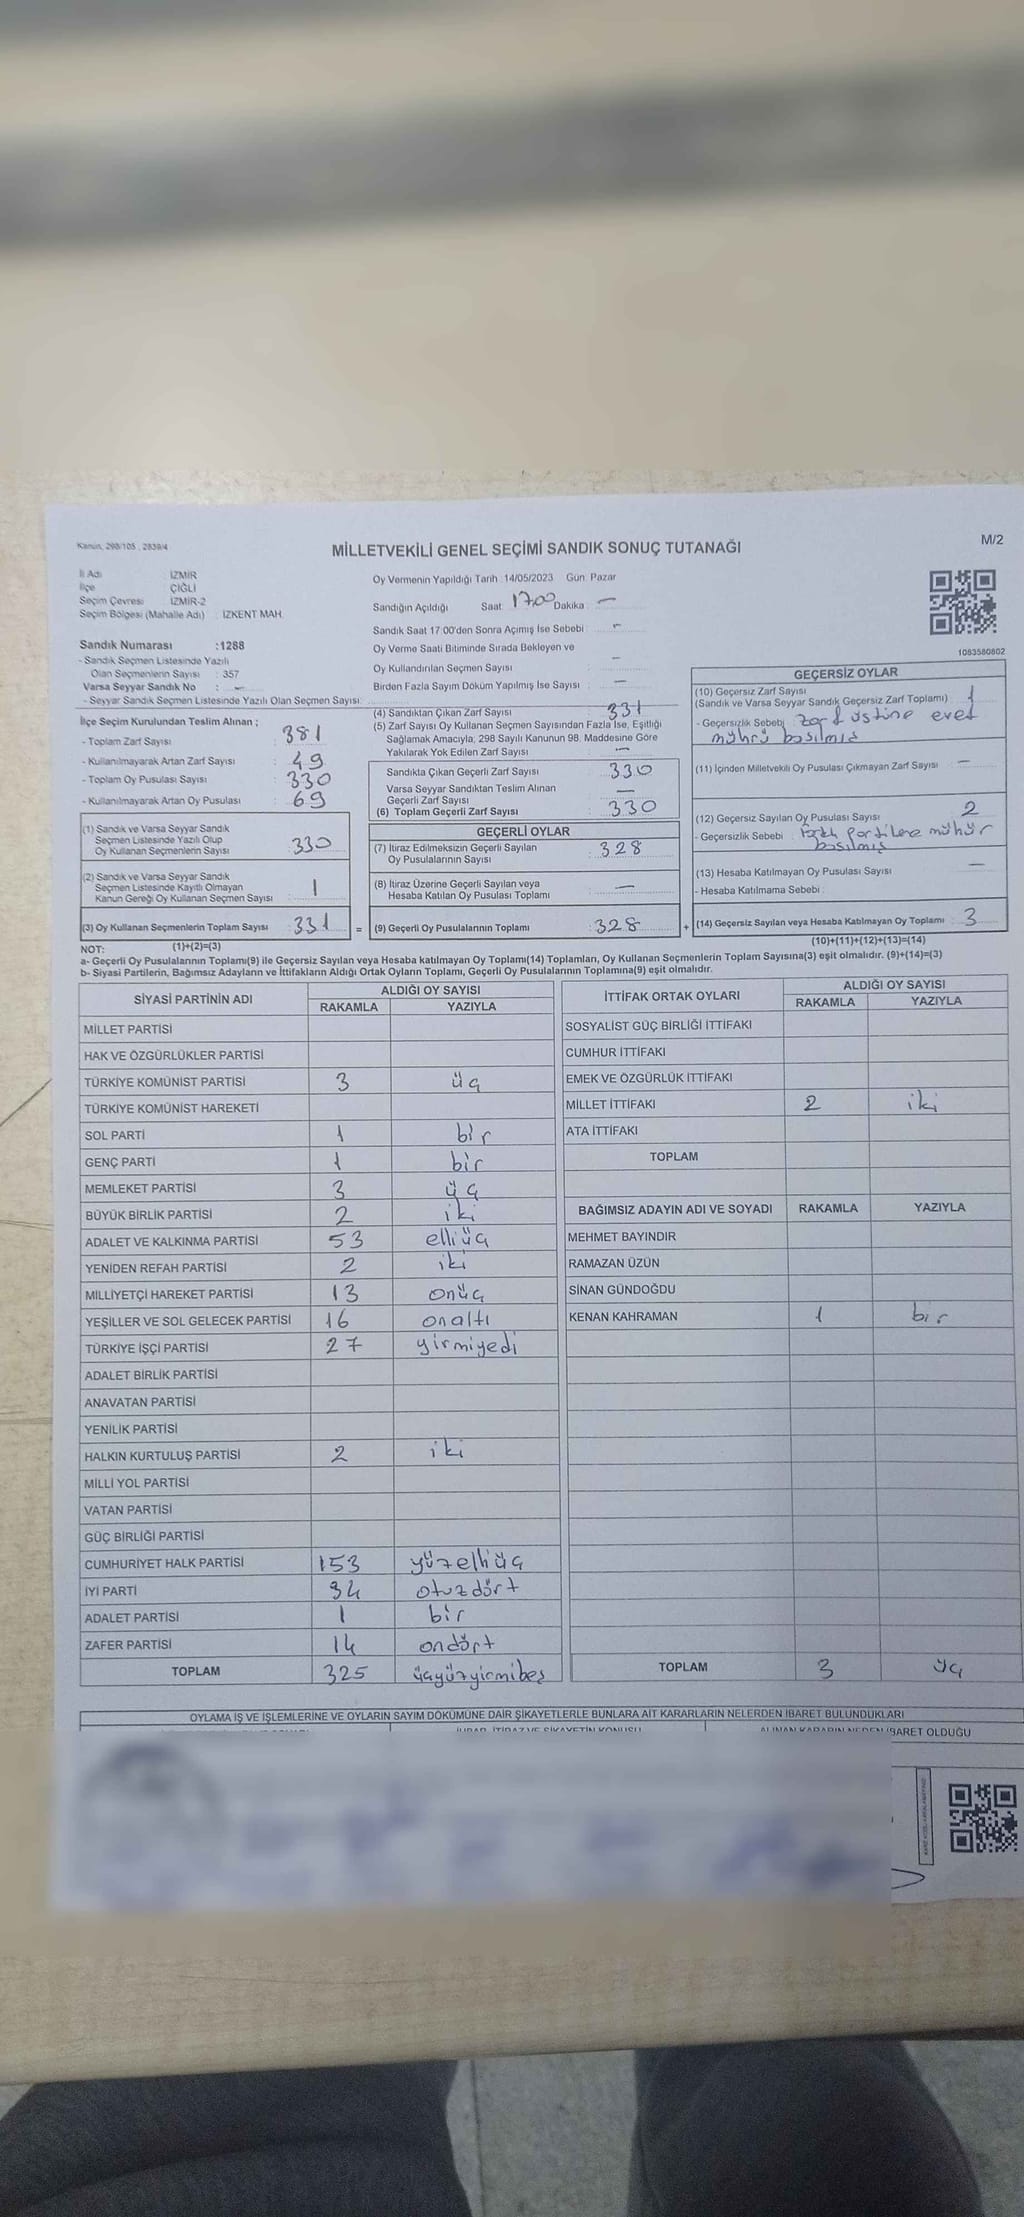 Kanun, 298/105 , 2839/4
MİLLETVEKİLİ GENEL SEÇİMİ SANDIK SONUÇ TUTANAĞI
M/2
İl Adı İZMİR
İlçe ÇİĞLİ
Seçim Çevresi İZMİR-2
Seçim Bölgesi (Mahalle Adı) : İZKENT MAH.
Oy Vermenin Yapıldığı Tarih : 14/05/2023 Gün: Pazar
Sandığın Açıldığı Saat 17:00 Dakika : —
Sandık Saat 17:00'den Sonra Açımış İse Sebebi : —
Oy Verme Saati Bitiminde Sırada Bekleyen ve
Oy Kullandırılan Seçmen Sayısı : —
Birden Fazla Sayım Döküm Yapılmış İse Sayısı : —
1083580802
Sandık Numarası :1288
- Sandık Seçmen Listesinde Yazılı
Olan Seçmenlerin Sayısı : 357
Varsa Seyyar Sandık No : —
- Seyyar Sandık Seçmen Listesinde Yazılı Olan Seçmen Sayısı:
İlçe Seçim Kurulundan Teslim Alınan ;
- Toplam Zarf Sayısı : 381
- Kullanılmayarak Artan Zarf Sayısı : 49
- Toplam Oy Pusulası Sayısı : 330
- Kullanılmayarak Artan Oy Pusulası : 69
(1) Sandık ve Varsa Seyyar Sandık
Seçmen Listesinde Yazılı Olup
Oy Kullanan Seçmenlerin Sayısı : 330
(2) Sandık ve Varsa Seyyar Sandık
Seçmen Listesinde Kayıtlı Olmayan
Kanun Gereği Oy Kullanan Seçmen Sayısı : 1
(3) Oy Kullanan Seçmenlerin Toplam Sayısı : 331
(4) Sandıktan Çıkan Zarf Sayısı : 331
(5) Zarf Sayısı Oy Kullanan Seçmen Sayısından Fazla İse, Eşitliği
Sağlamak Amacıyla; 298 Sayılı Kanunun 98. Maddesine Göre
Yakılarak Yok Edilen Zarf Sayısı : —
Sandıkta Çıkan Geçerli Zarf Sayısı : 330
Varsa Seyyar Sandıktan Teslim Alınan
Geçerli Zarf Sayısı : —
(6) Toplam Geçerli Zarf Sayısı : 330
GEÇERLİ OYLAR
(7) İtiraz Edilmeksizin Geçerli Sayılan
Oy Pusulalarının Sayısı : 328
(8) İtiraz Üzerine Geçerli Sayılan veya
Hesaba Katılan Oy Pusulası Toplamı : —
= (9) Geçerli Oy Pusulalarının Toplamı : 328 +
GEÇERSİZ OYLAR
(10) Geçersiz Zarf Sayısı
(Sandık ve Varsa Seyyar Sandık Geçersiz Zarf Toplamı) : 1
- Geçersizlik Sebebi : zarf üstüne evet
mührü basılmış
(11) İçinden Milletvekili Oy Pusulası Çıkmayan Zarf Sayısı : —
(12) Geçersiz Sayılan Oy Pusulası Sayısı : 2
- Geçersizlik Sebebi : farklı partilere mühür
basılmış
(13) Hesaba Katılmayan Oy Pusulası Sayısı : —
- Hesaba Katılmama Sebebi :
(14) Geçersiz Sayılan veya Hesaba Katılmayan Oy Toplamı : 3
NOT: (1)+(2)=(3) (10)+(11)+(12)+(13)=(14)
a- Geçerli Oy Pusulalarının Toplamı(9) ile Geçersiz Sayılan veya Hesaba katılmayan Oy Toplamı(14) Toplamları, Oy Kullanan Seçmenlerin Toplam Sayısına(3) eşit olmalıdır. (9)+(14)=(3)
b- Siyasi Partilerin, Bağımsız Adayların ve İttifakların Aldığı Ortak Oyların Toplamı, Geçerli Oy Pusulalarının Toplamına(9) eşit olmalıdır.
SİYASİ PARTİNİN ADI ALDIĞI OY SAYISI
RAKAMLA YAZIYLA
MİLLET PARTİSİ
HAK VE ÖZGÜRLÜKLER PARTİSİ
TÜRKİYE KOMÜNİST PARTİSİ 3 üç
TÜRKİYE KOMÜNİST HAREKETİ
SOL PARTİ 1 bir
GENÇ PARTİ 1 bir
MEMLEKET PARTİSİ 3 üç
BÜYÜK BİRLİK PARTİSİ 2 iki
ADALET VE KALKINMA PARTİSİ 53 elliüç
YENİDEN REFAH PARTİSİ 2 iki
MİLLİYETÇİ HAREKET PARTİSİ 13 onüç
YEŞİLLER VE SOL GELECEK PARTİSİ 16 onaltı
TÜRKİYE İŞÇİ PARTİSİ 27 yirmiyedi
ADALET BİRLİK PARTİSİ
ANAVATAN PARTİSİ
YENİLİK PARTİSİ
HALKIN KURTULUŞ PARTİSİ 2 iki
MİLLİ YOL PARTİSİ
VATAN PARTİSİ
GÜÇ BİRLİĞİ PARTİSİ
CUMHURİYET HALK PARTİSİ 153 yüzelliüç
İYİ PARTİ 34 otuzdört
ADALET PARTİSİ 1 bir
ZAFER PARTİSİ 14 ondört
TOPLAM 325 üçyüzyirmibeş
İTTİFAK ORTAK OYLARI ALDIĞI OY SAYISI
RAKAMLA YAZIYLA
SOSYALİST GÜÇ BİRLİĞİ İTTİFAKI
CUMHUR İTTİFAKI
EMEK VE ÖZGÜRLÜK İTTİFAKI
MİLLET İTTİFAKI 2 iki
ATA İTTİFAKI
TOPLAM
BAĞIMSIZ ADAYIN ADI VE SOYADI RAKAMLA YAZIYLA
MEHMET BAYINDIR
RAMAZAN ÜZÜN
SİNAN GÜNDOĞDU
KENAN KAHRAMAN 1 bir
TOPLAM 3 üç
OYLAMA İŞ VE İŞLEMLERİNE VE OYLARIN SAYIM DÖKÜMÜNE DAİR ŞİKAYETLERLE BUNLARA AİT KARARLARIN NELERDEN İBARET BULUNDUKLARI
İTİRAZ VE ŞİKAYETİN KONUSU
ALINAN KARARIN NEDEN İBARET OLDUĞU